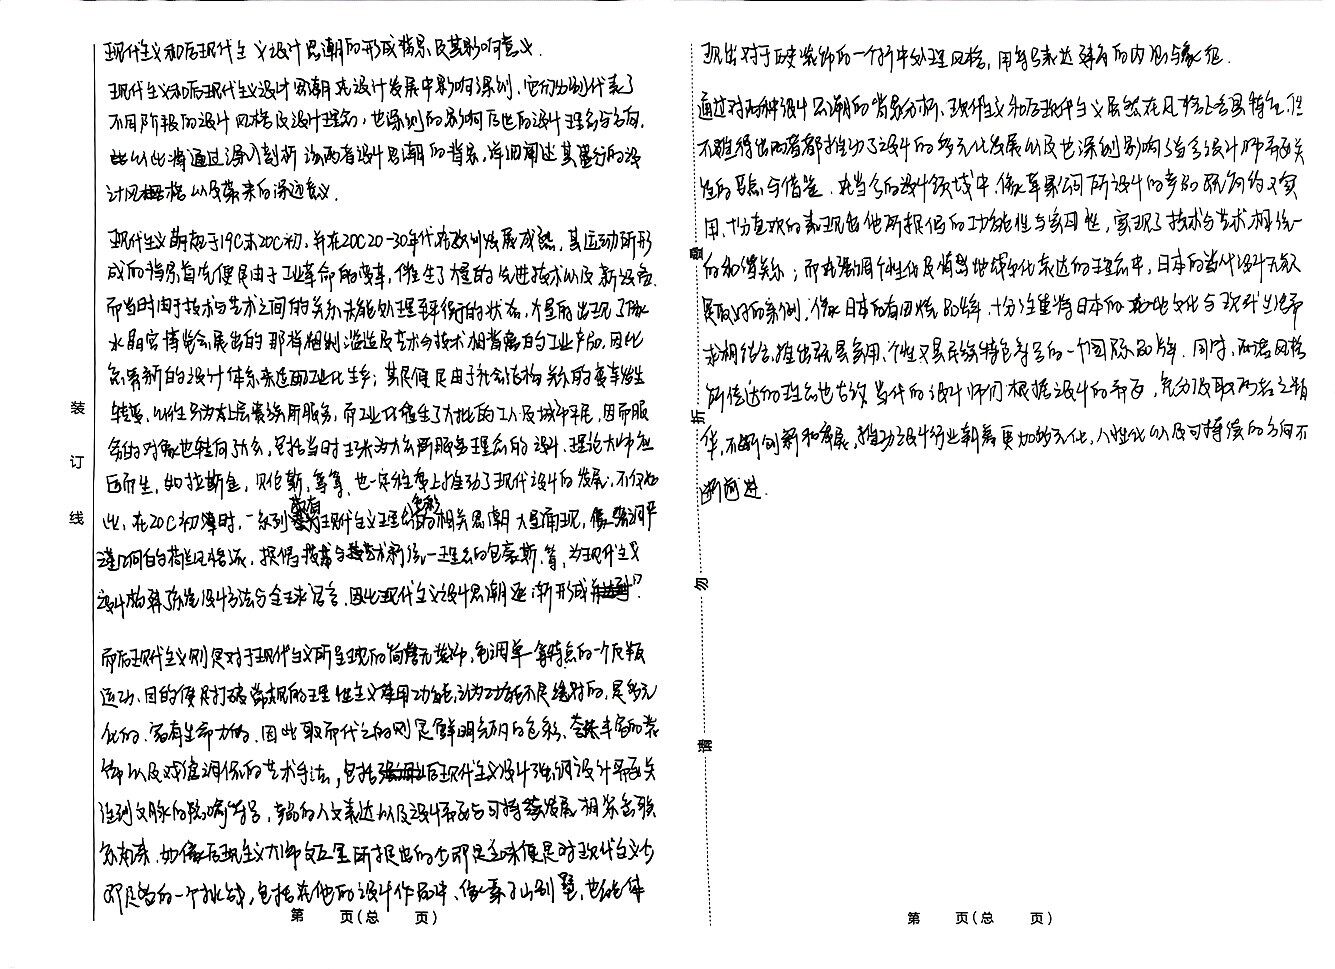 现代主义和后现代主义设计思潮的形成背景及其影响意义.
现代主义和后现代主义设计思潮在设计发展中影响深刻,它们分别代表了
不同阶段的设计风格及设计理念,也深刻的影响后世的设计理念与方向.
以此将通过深入剖析该两者设计思潮的背景,详细阐述其盛行的设
计风格以及带来的深远意义.
现代主义萌起于19C末20C初,并在20C20-30年代发展成熟,其运动所形
成的背景首先便是由于工业革命的变革,催生了大量的先进技术以及新设备
而当时由于技术与艺术之间的关系未能处理至平衡的状态,大量的出现了像
水晶宫博览会展出的那样粗制滥造及艺术与技术相背离的工业产品,因此
急需新的设计体系来适应工业化生产;其次便是由于社会结构关系的变革发生
转变,以往多为上层贵族所服务,而工业化催生了大批的工人及城市平民,因而服
务的对象也转向了大众,包括当时主张为大众所服务理念的设计理论大师应
运而生,如拉斯金,贝伦斯,等等,也一定程度上推动了现代设计的发展,不仅如
此,在20C初期时,一系列带有现代主义理念色彩的相关思潮大量涌现,像
蒙德里安的荷兰风格派,提倡技术与艺术新统一理念的包豪斯,等,为现代主义
设计奠定设计方法与全球语言,因此现代主义设计思潮逐渐形成
而后现代主义则是对于现代主义所呈现的简洁无装饰,色调单一等特点的一个反叛
运动,目的便是打破常规的理性主义单用功能,认为功能不是绝对的,是多元
化的,富有生命力的,因此取而代之的则是鲜明亮丽的色彩、丰富的装
饰以及戏谑调侃的艺术手法,包括后现代主义设计强调设计需要关
注到文脉的隐喻符号,产品的人文表达以及设计需要与可持续发展相
如像后现代主义大师文丘里所提出的少即是乏味便是对现代主义少
即是多的一个挑战,包括在他的设计作品中,像栗子山别墅,也能体
第 页(总 页)
装
订
线
现出对于历史装饰的一个折中处理风格,用符号表达建筑的内涵与象征.
通过对两种设计思潮的背景分析,现代主义和后现代主义虽然在风格上各具特色,但
不难得出两者都推动了设计的多元化发展以及也深刻影响了当今设计师需要关
注的思想与借鉴.在当今的设计领域中,像苹果公司所设计的产品既简约又实
用,十分直观的表现出他所提倡的功能性与实用性,实现了技术与艺术相统一
的和谐关系;而在强调个性化及情感地域文化表达的理念中,日本的当代设计无疑
是最好的案例.像日本的有田烧品牌,十分注重将日本的本地文化与现代生活需
求相结合,推出既具实用,个性又具民族特色符号的一个国际品牌.同时,两者风格
所传达的理念也告诫当代的设计师们根据设计的需要,充分汲取两者之精
华,不断创新和发展,推动设计行业朝着更加多元化,人性化以及可持续的方向不
断前进.
折
勿
请
第 页(总 页)